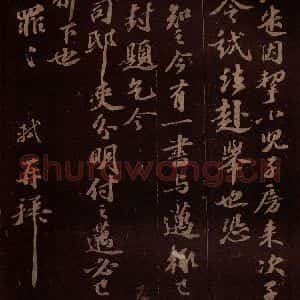 因挈小兒子房来次子
令試法赴舉也恐
知之今有一書与邁
封題乞令
司邸吏分明付之邁必已
下也
罪〻
軾再拜
Shufawang.cn